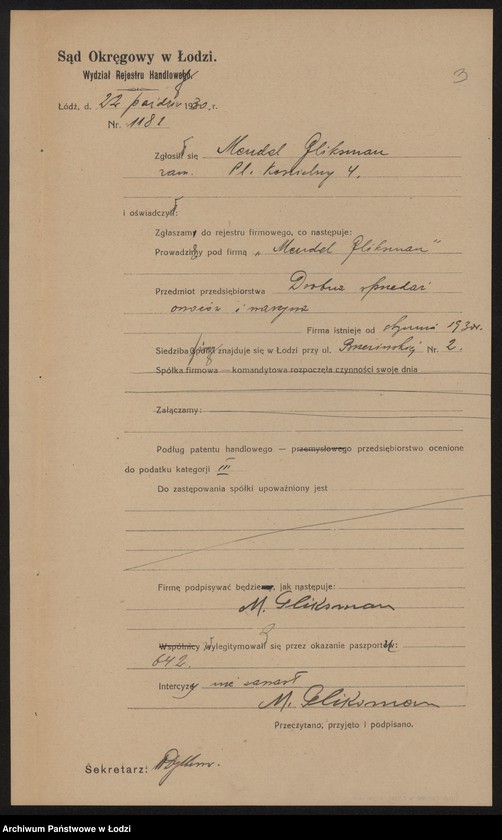 3
Sąd Okręgowy w Łodzi.
Wydział Rejestru Handlowego.
Łódź, d. 22 paźdz 1930. r.
Nr. 1181
Zgłosił się Mendel Gliksman
zam. Pl. Kościelny 4.
i oświadczył:
Zgłaszam do rejestru firmowego, co następuje:
Prowadzę pod firmą „Mendel Gliksman"
Przedmiot przedsiębiorstwa Drobna sprzedaż
owoców i warzyw
Firma istnieje od stycznia 1930r.
Siedziba znajduje się w Łodzi przy ul. Brzezińskiej Nr. 2.
Spółka firmowa — komandytowa rozpoczęła czynności swoje dnia
Załączamy:
Podług patentu handlowego — przemysłowego przedsiębiorstwo ocenione
do podatku kategorji III
Do zastępowania spółki upoważniony jest
Firmę podpisywać będzie, jak następuje:
M. Gliksman
Wspólnicy wylegitymował się przez okazanie paszportu:
642.
Intercyzy nie zawarł
M. Gliksman
Przeczytano, przyjęto i podpisano.
Sekretarz:
Archiwum Państwowe w Łodzi